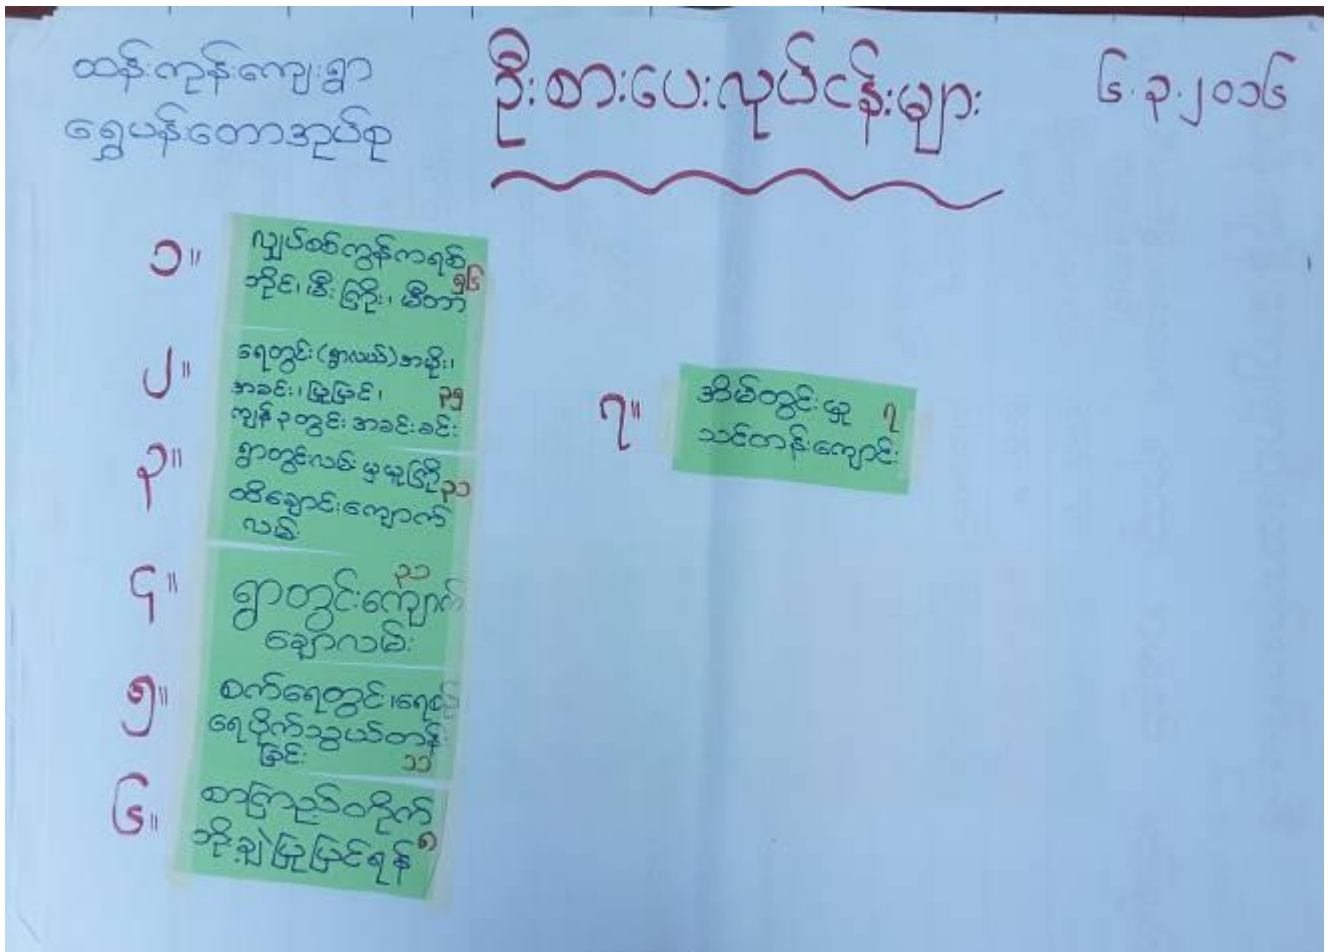 ထန်းကုန်းကျေးရွာ
ရွှေပန်းတောအုပ်စု
ဦးစားပေးလုပ်ငန်းများ
၆.၃.၂၀၁၆
၁။
လျှပ်စစ်ကွန်ကရစ်
တိုင်၊ မီးကြိုး၊ မီတာ ၅၆
၂။
ရေတွင်း(ရွာလယ်)အမိုး၊
အခင်း၊ ပြုပြင်၊ ၃၅
ကျန်၃တွင်း အခင်းခင်း
၃။
ရွာတွင်းလမ်း မှ ယူကြို ၃၁
ထိချောင်းကျောက်
လမ်း
၄။
၃၁
ရွာတွင်းကျောက်
ချောလမ်း
၅။
စက်ရေတွင်း၊ရေစင်
ရေပိုက်သွယ်တန်း
ခြင်း ၁၁
၆။
စာကြည့်တိုက်
တိုးချဲ့ပြုပြင်ရန် ၈
၇။
အိမ်တွင်းမှု ၇
သင်တန်းကျောင်း